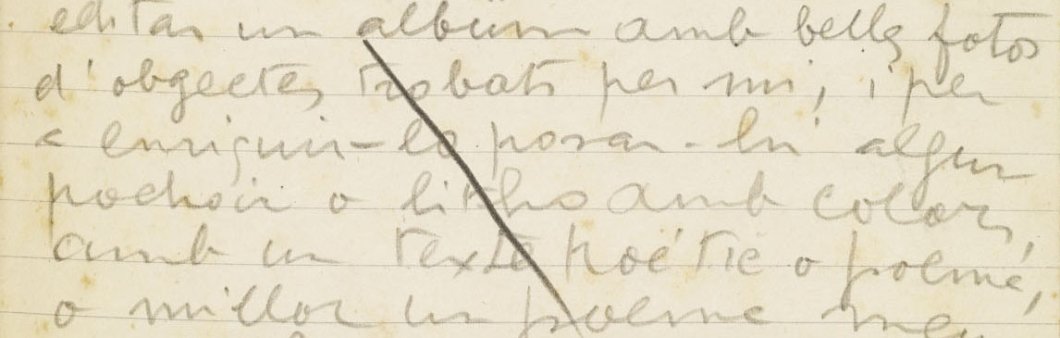 editar un album amb belles fotos
d'obgectes trobats per mi, i per
a enriquir-lo posar-hi algun
pochoir o litho amb colors,
amb un texte poétic o poeme,
o millor un poeme meu